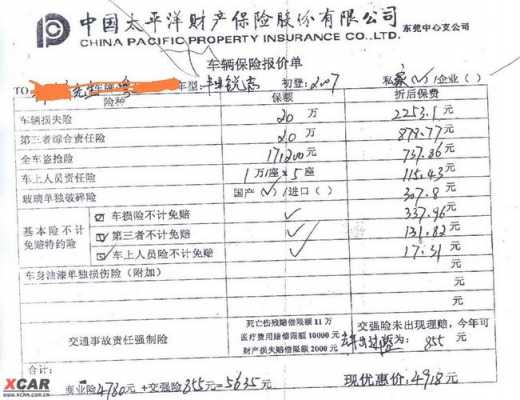 中国太平洋财产保险股份有限公司 东莞中心支公司
CHINA PACIFIC PROPERTY INSURANCE CO.,LTD.
车辆保险报价单
TO 先生 车型: 锐志 初登: 2007 私家(√)/企业( )
险种 保额 折后保费
车辆损失险 20 万 2253.1 元
第三者综合责任险 20 万 878.77 元
全车盗抢险 171200 元 737.86 元
车上人员责任险 1 万/座*5 座 115.43 元
玻璃单独破碎险 国产(√)/进口( ) 307.8 元
基本险不计免赔特约险
☑ 车损险不计免赔 √ 337.96 元
☑ 第三者不计免赔 √ 131.82 元
☑ 车上人员险不计免赔 √ 17.31 元
车身油漆单独损伤险(附加) 元
元
交通事故责任强制险
死亡伤残赔偿限额 11 万
医疗费用赔偿限额 10000 元
财产损失赔偿限额 2000 元
交强险未出现理赔, 今年可
为: 855 元
合计:
商业险4780元 +交强险855元=5635元 现优惠价:4918元
XCAR
WWW.XCAR.COM.CN